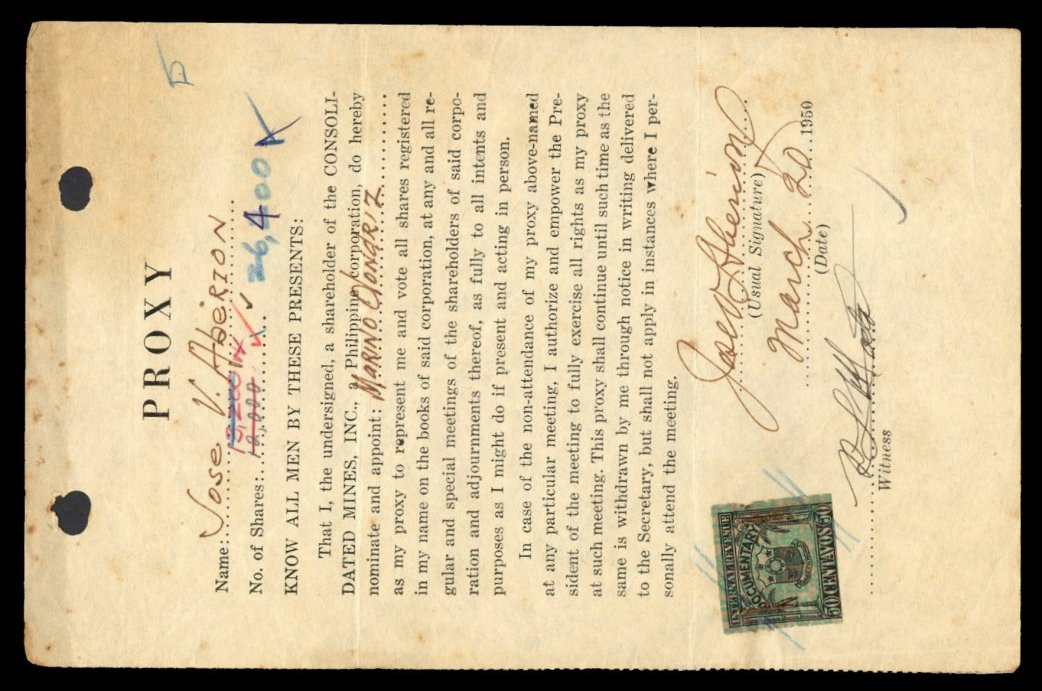 PROXY
Name: Jose V. Aberion
No. of Shares: 10,000 26,400
KNOW ALL MEN BY THESE PRESENTS:
That I, the undersigned, a shareholder of the CONSOLI-
DATED MINES, INC., a Philippine corporation, do hereby
nominate and appoint: MARINO
as my proxy to represent me and vote all shares registered
in my name on the books of said corporation, at any and all re-
gular and special meetings of the shareholders of said corpo-
ration and adjournments thereof, as fully to all intents and
purposes as I might do if present and acting in person.
In case of the non-attendance of my proxy above-named
at any particular meeting, I authorize and empower the Pre-
sident of the meeting to fully exercise all rights as my proxy
at such meeting. This proxy shall continue until such time as the
same is withdrawn by me through notice in writing delivered
to the Secretary, but shall not apply in instances where I per-
sonally attend the meeting.
(Usual Signature)
March 20 1950
(Date)
Witness
INTERNAL REVENUE
DOCUMENTARY
50 CENTAVOS 50